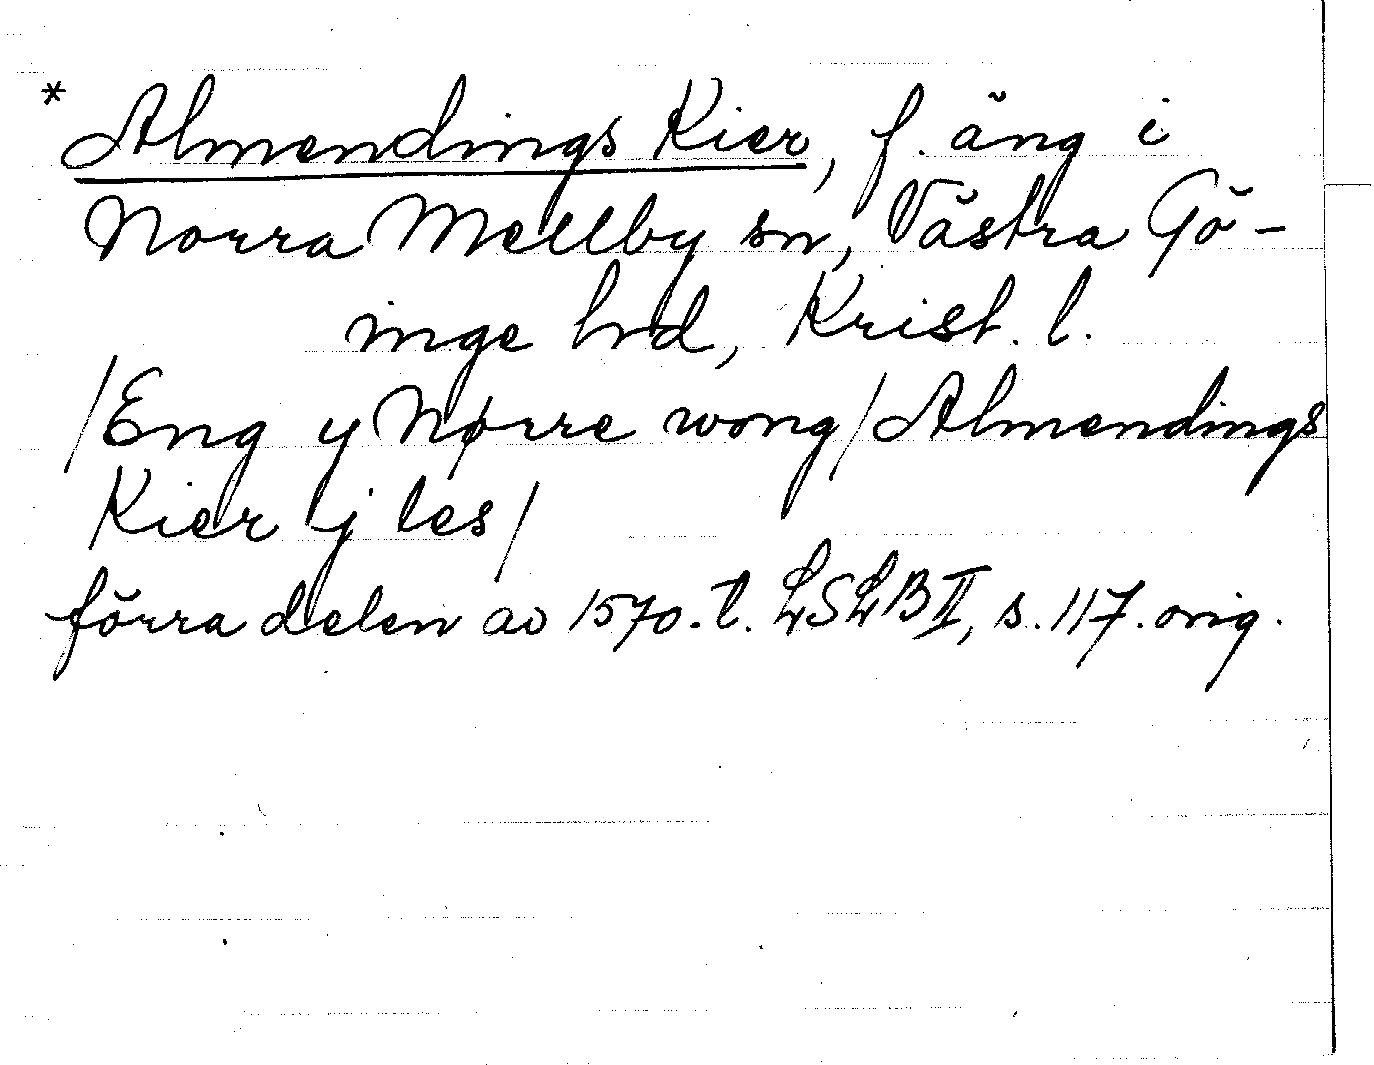 * Almendings Kier, f. äng i
Norra Mellby sn, Västra Gö-
inge hd, Krist. l.
/Eng y Nørre wong/Almendings
Kier ij les/
förra delen av 1570-t. LSLB II, s. 117. orig.